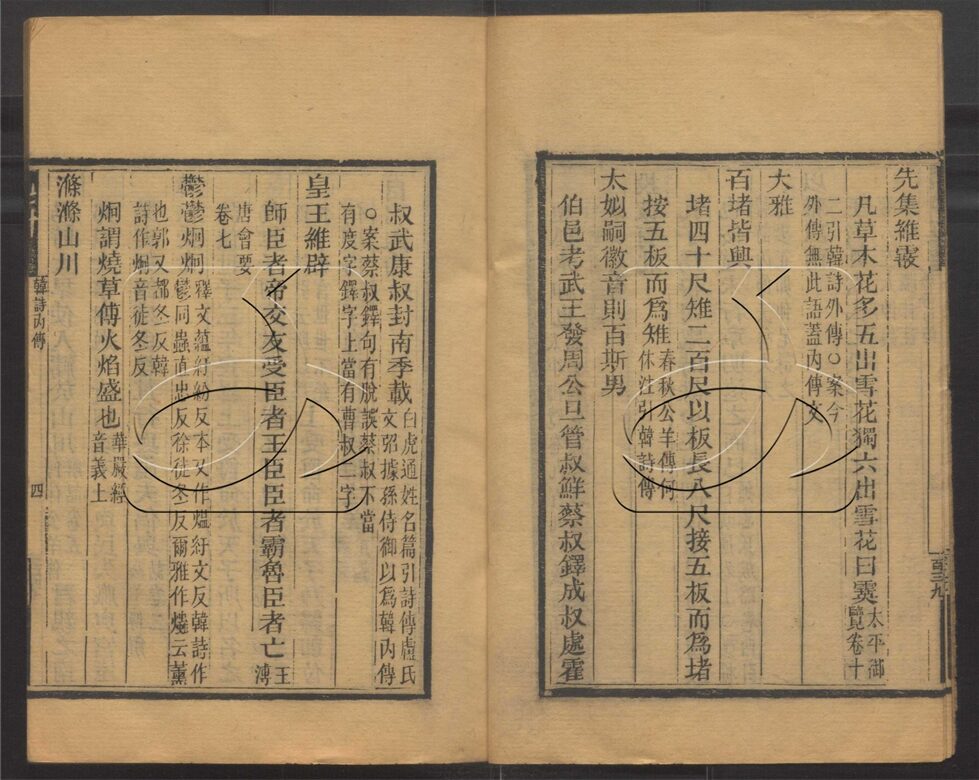 先集維霰
凡草木花多五出雪花獨六出雪花曰霙太平御覽卷十
二引韓詩外傳○案今外傳無此語蓋内傳文
大雅
百堵皆興
堵四十尺雉二百尺以板長八尺接五板而爲堵
按五板而爲雉春秋公羊傳何休注引韓詩傳
太姒嗣徽音則百斯男
伯邑考武王發周公旦管叔鮮蔡叔鐸成叔處霍
百三九
叔武康叔封南季載白虎通姓名篇引詩傳盧氏文弨據孫侍御以爲韓内傳
○案蔡叔鐸句有脫誤蔡叔不當有度字鐸字上當有曹叔二字
皇王維辟
師臣者帝交友受臣者王臣臣者霸魯臣者亡王溥
唐會要卷七
鬱鬱炯炯釋文蘊紆紛反本又作熅紆文反韓詩作鬱同蟲直忠反徐徒冬反爾雅作爞云薰
也郭又都冬反韓詩作烔音徒冬反
炯謂燒草傳火焰盛也華嚴經音義上
滌滌山川
韓詩内傳
四